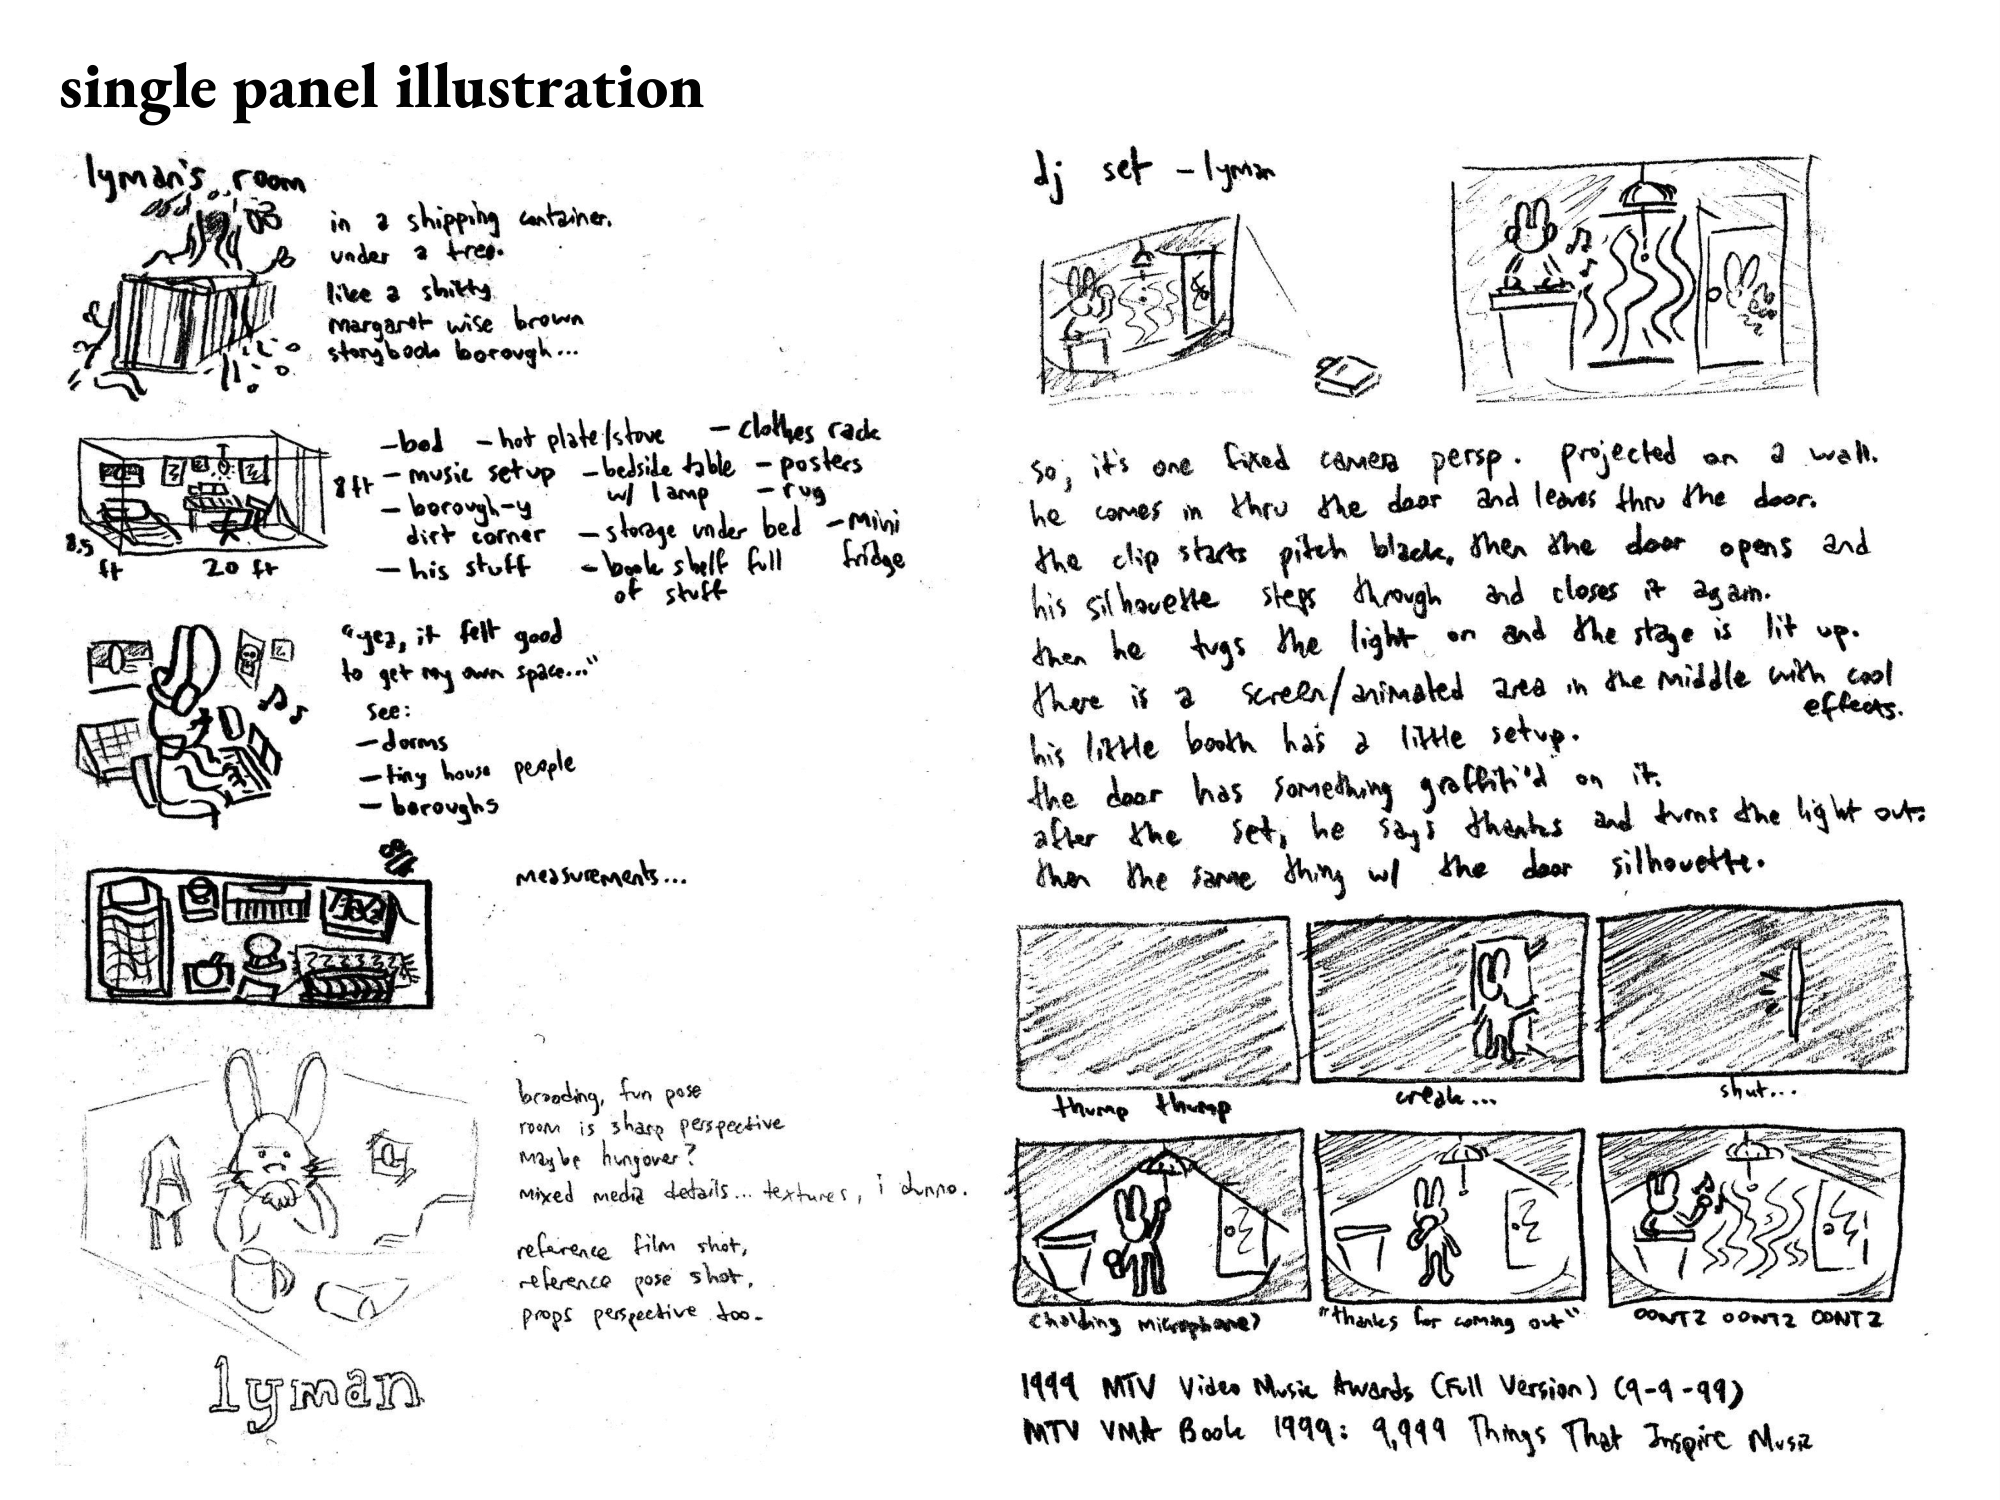 single panel illustration
lyman's room
in a shipping container.
under a tree.
like a shitty
margaret wise brown
storybook borough...
-bed
- music setup
- borough-y
dirt corner
- his stuff
- hot plate/stove
- bedside table
w/ lamp
- storage under bed
- book shelf full
of stuff
- clothes rack
- posters
- rug
- mini
fridge
8 ft
8.5
ft
20 ft
"yea, it felt good
to get my own space..."
see:
- dorms
- tiny house people
- boroughs
measurements...
brooding, fun pose
room is sharp perspective
maybe hungover?
mixed media details... textures, i dunno.
reference film shot,
reference pose shot,
props perspective too.
lyman
dj set - lyman
so, it's one fixed camera persp. projected on a wall.
he comes in thru the door and leaves thru the door.
the clip starts pitch black, then the door opens and
his silhouette steps through and closes it again.
then he tugs the light on and the stage is lit up.
there is a screen/animated area in the middle with cool
effects.
his little booth has a little setup.
the door has something graffiti'd on it.
after the set, he says thanks and turns the light out.
then the same thing w/ the door silhouette.
thump thump
creak...
shut...
(holding microphone)
"thanks for coming out"
OONTZ OONTZ OONTZ
1999 MTV Video Music Awards (Full Version) (9-9-99)
MTV VMA Book 1999: 9,999 Things That Inspire Music